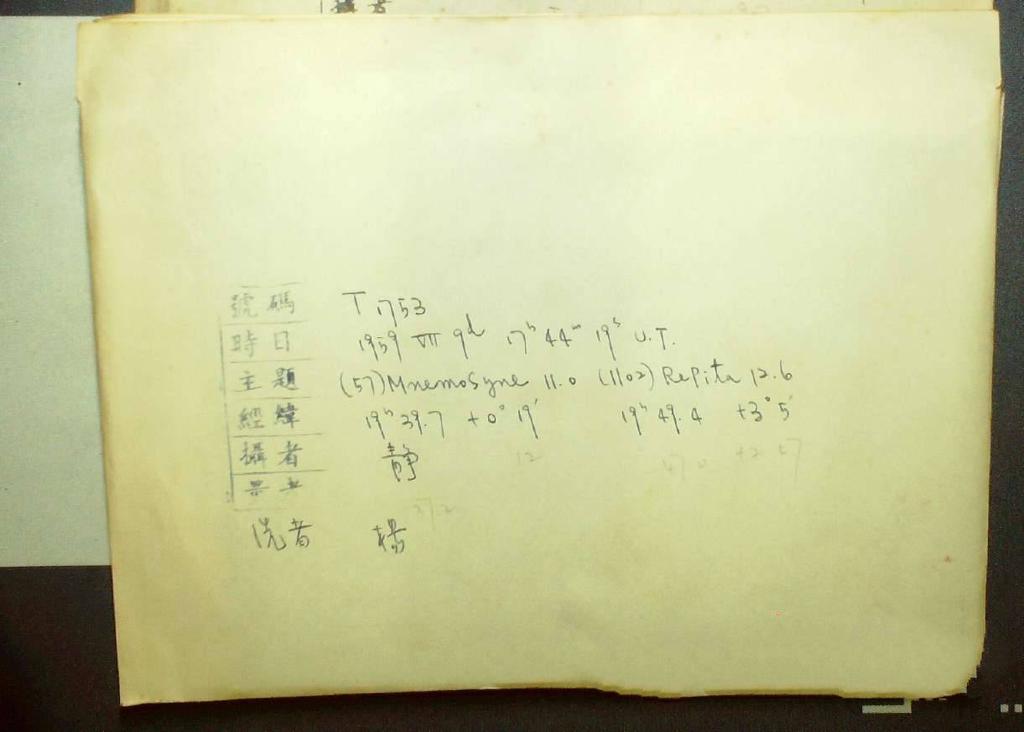 攝者
號碼 T 1753
時日 1959 VII 9d 17h 44m 19s U.T.
主題 (57)Mnemosyne 11.0 (1102) Repita 12.6
經緯 19h 39.7 +0° 19' 19h 49.4 +3° 5'
攝者 靜
洗者 楊